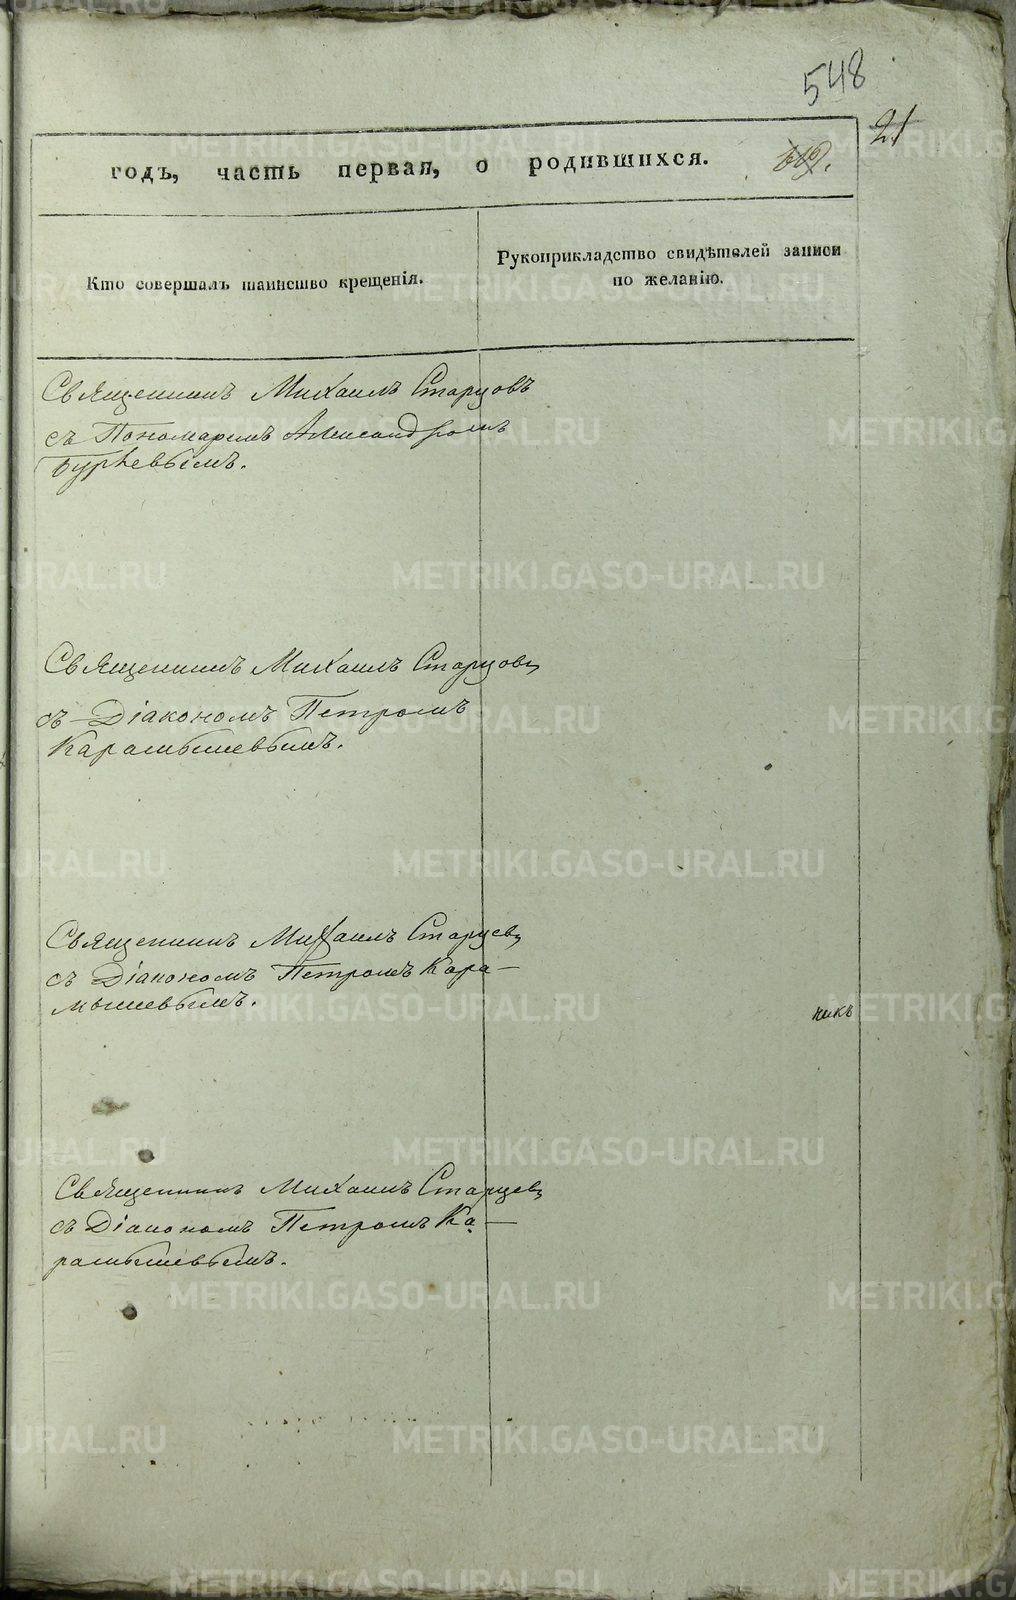 548
21
годъ, часть первая, о родившихся.
Кто совершалъ таинство крещенія.
Рукоприкладство свидѣтелей записи
по желанію.
Священникъ Михаилъ Старцовъ
съ Пономаремъ Александромъ
Гурьевымъ.
Священникъ Михаилъ Старцовъ
съ Діакономъ Петромъ
Карамышевымъ.
Священникъ Михаилъ Старцевъ
съ Діакономъ Петромъ Кара–
мышевымъ.
никъ
Священникъ Михаилъ Старцевъ
съ Діакономъ Петромъ Ка–
рамышевымъ.
METRIKI.GASO-URAL.RU